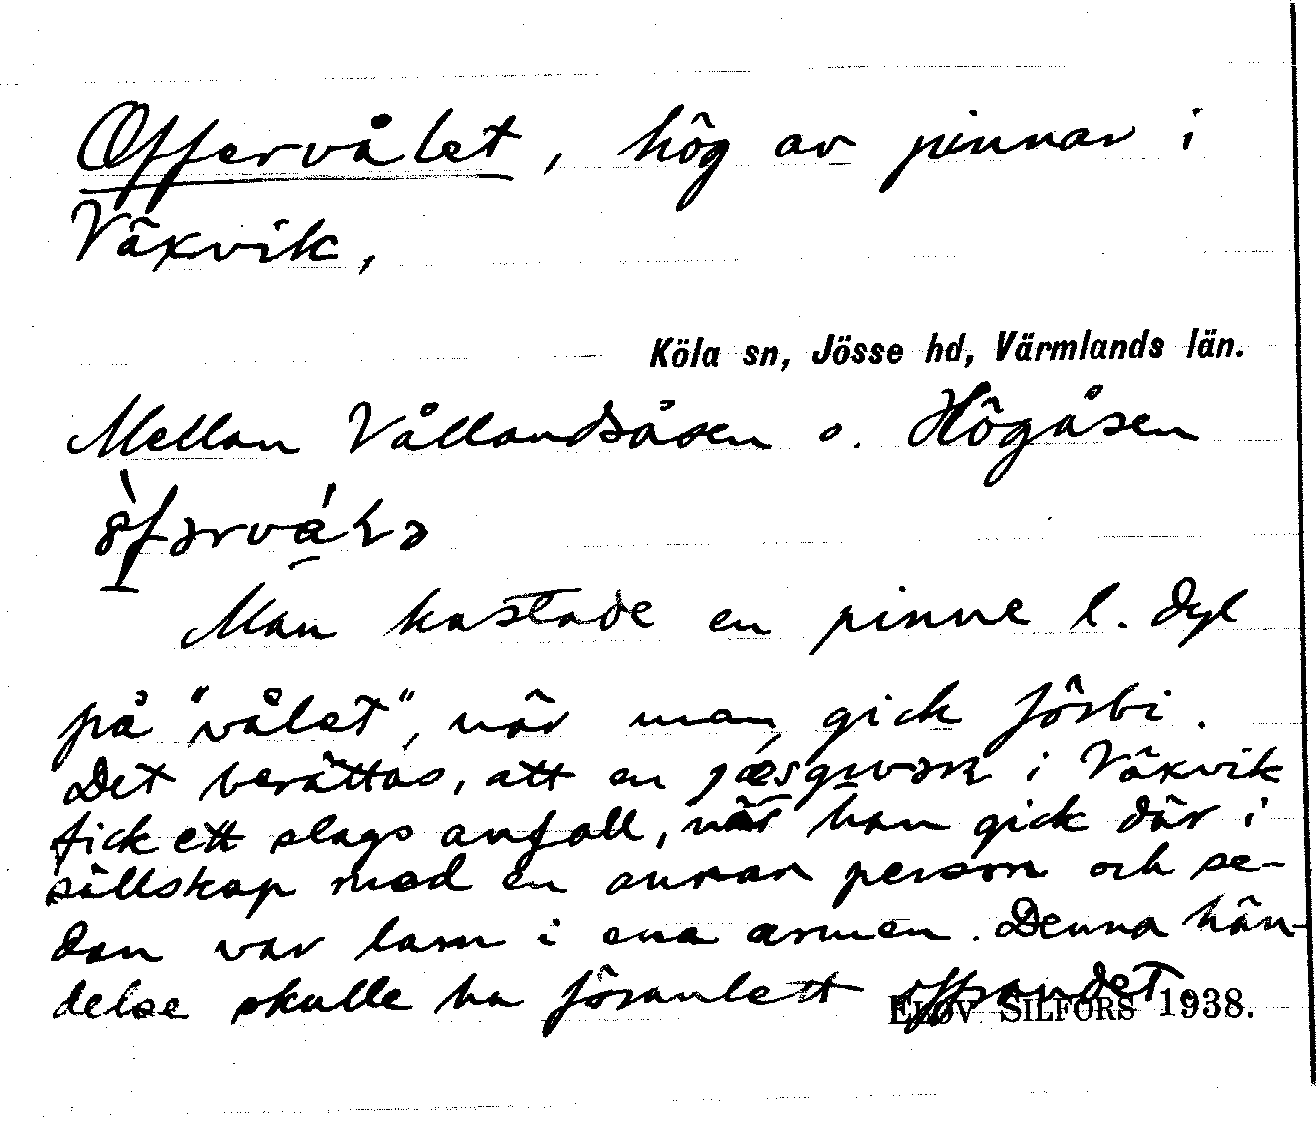 Offervålet, hög av pinnar i
Växvik,
Köla sn, Jösse hd, Värmlands län.
Mellan Vållandsåsen o. Högåsen
Man kastade en pinne l. dyl
på "vålet", när man gick förbi.
Det berättas, att en i Växvik
fick ett slags anfall, när han gick där i
sällskap med en annan person och se-
dan var lam i ena armen. Denna hän-
delse skulle ha föranlett offrandet.
ELOV SILFORS 1938.